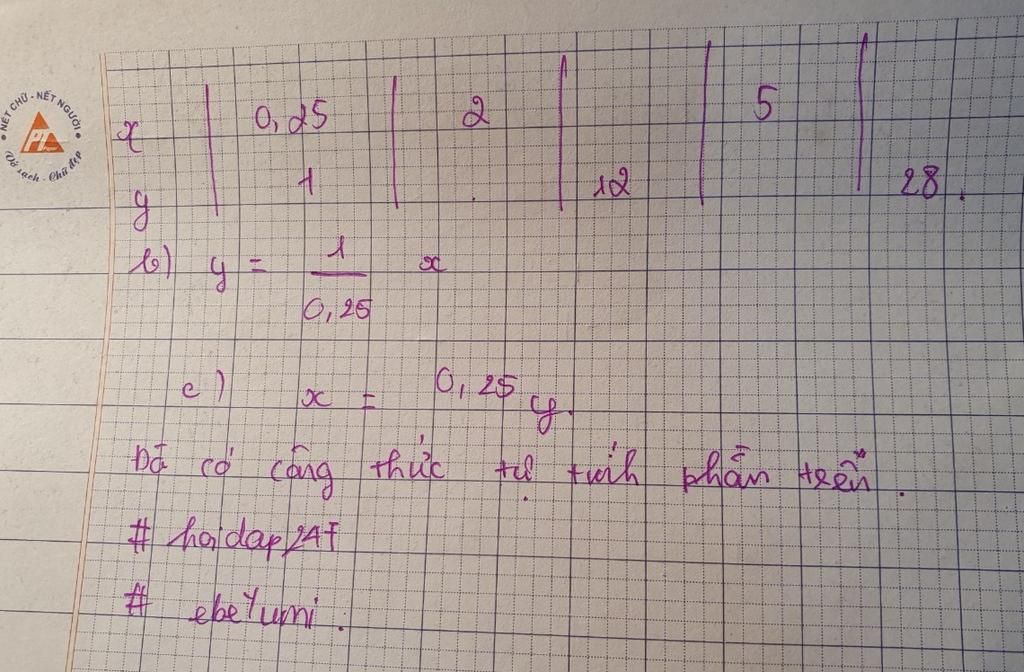 NÉT CHỮ - NẾT NGƯỜI
Vở sạch - Chữ đẹp
x | 0,25 | 2 | | 5 |
y | 1 | | 12 | | 28.
b) y = 1/0,25 x
c) x = 0,25 y.
Đã có công thức tự tính phần trên.
# hoidap247
# ebeYumi.